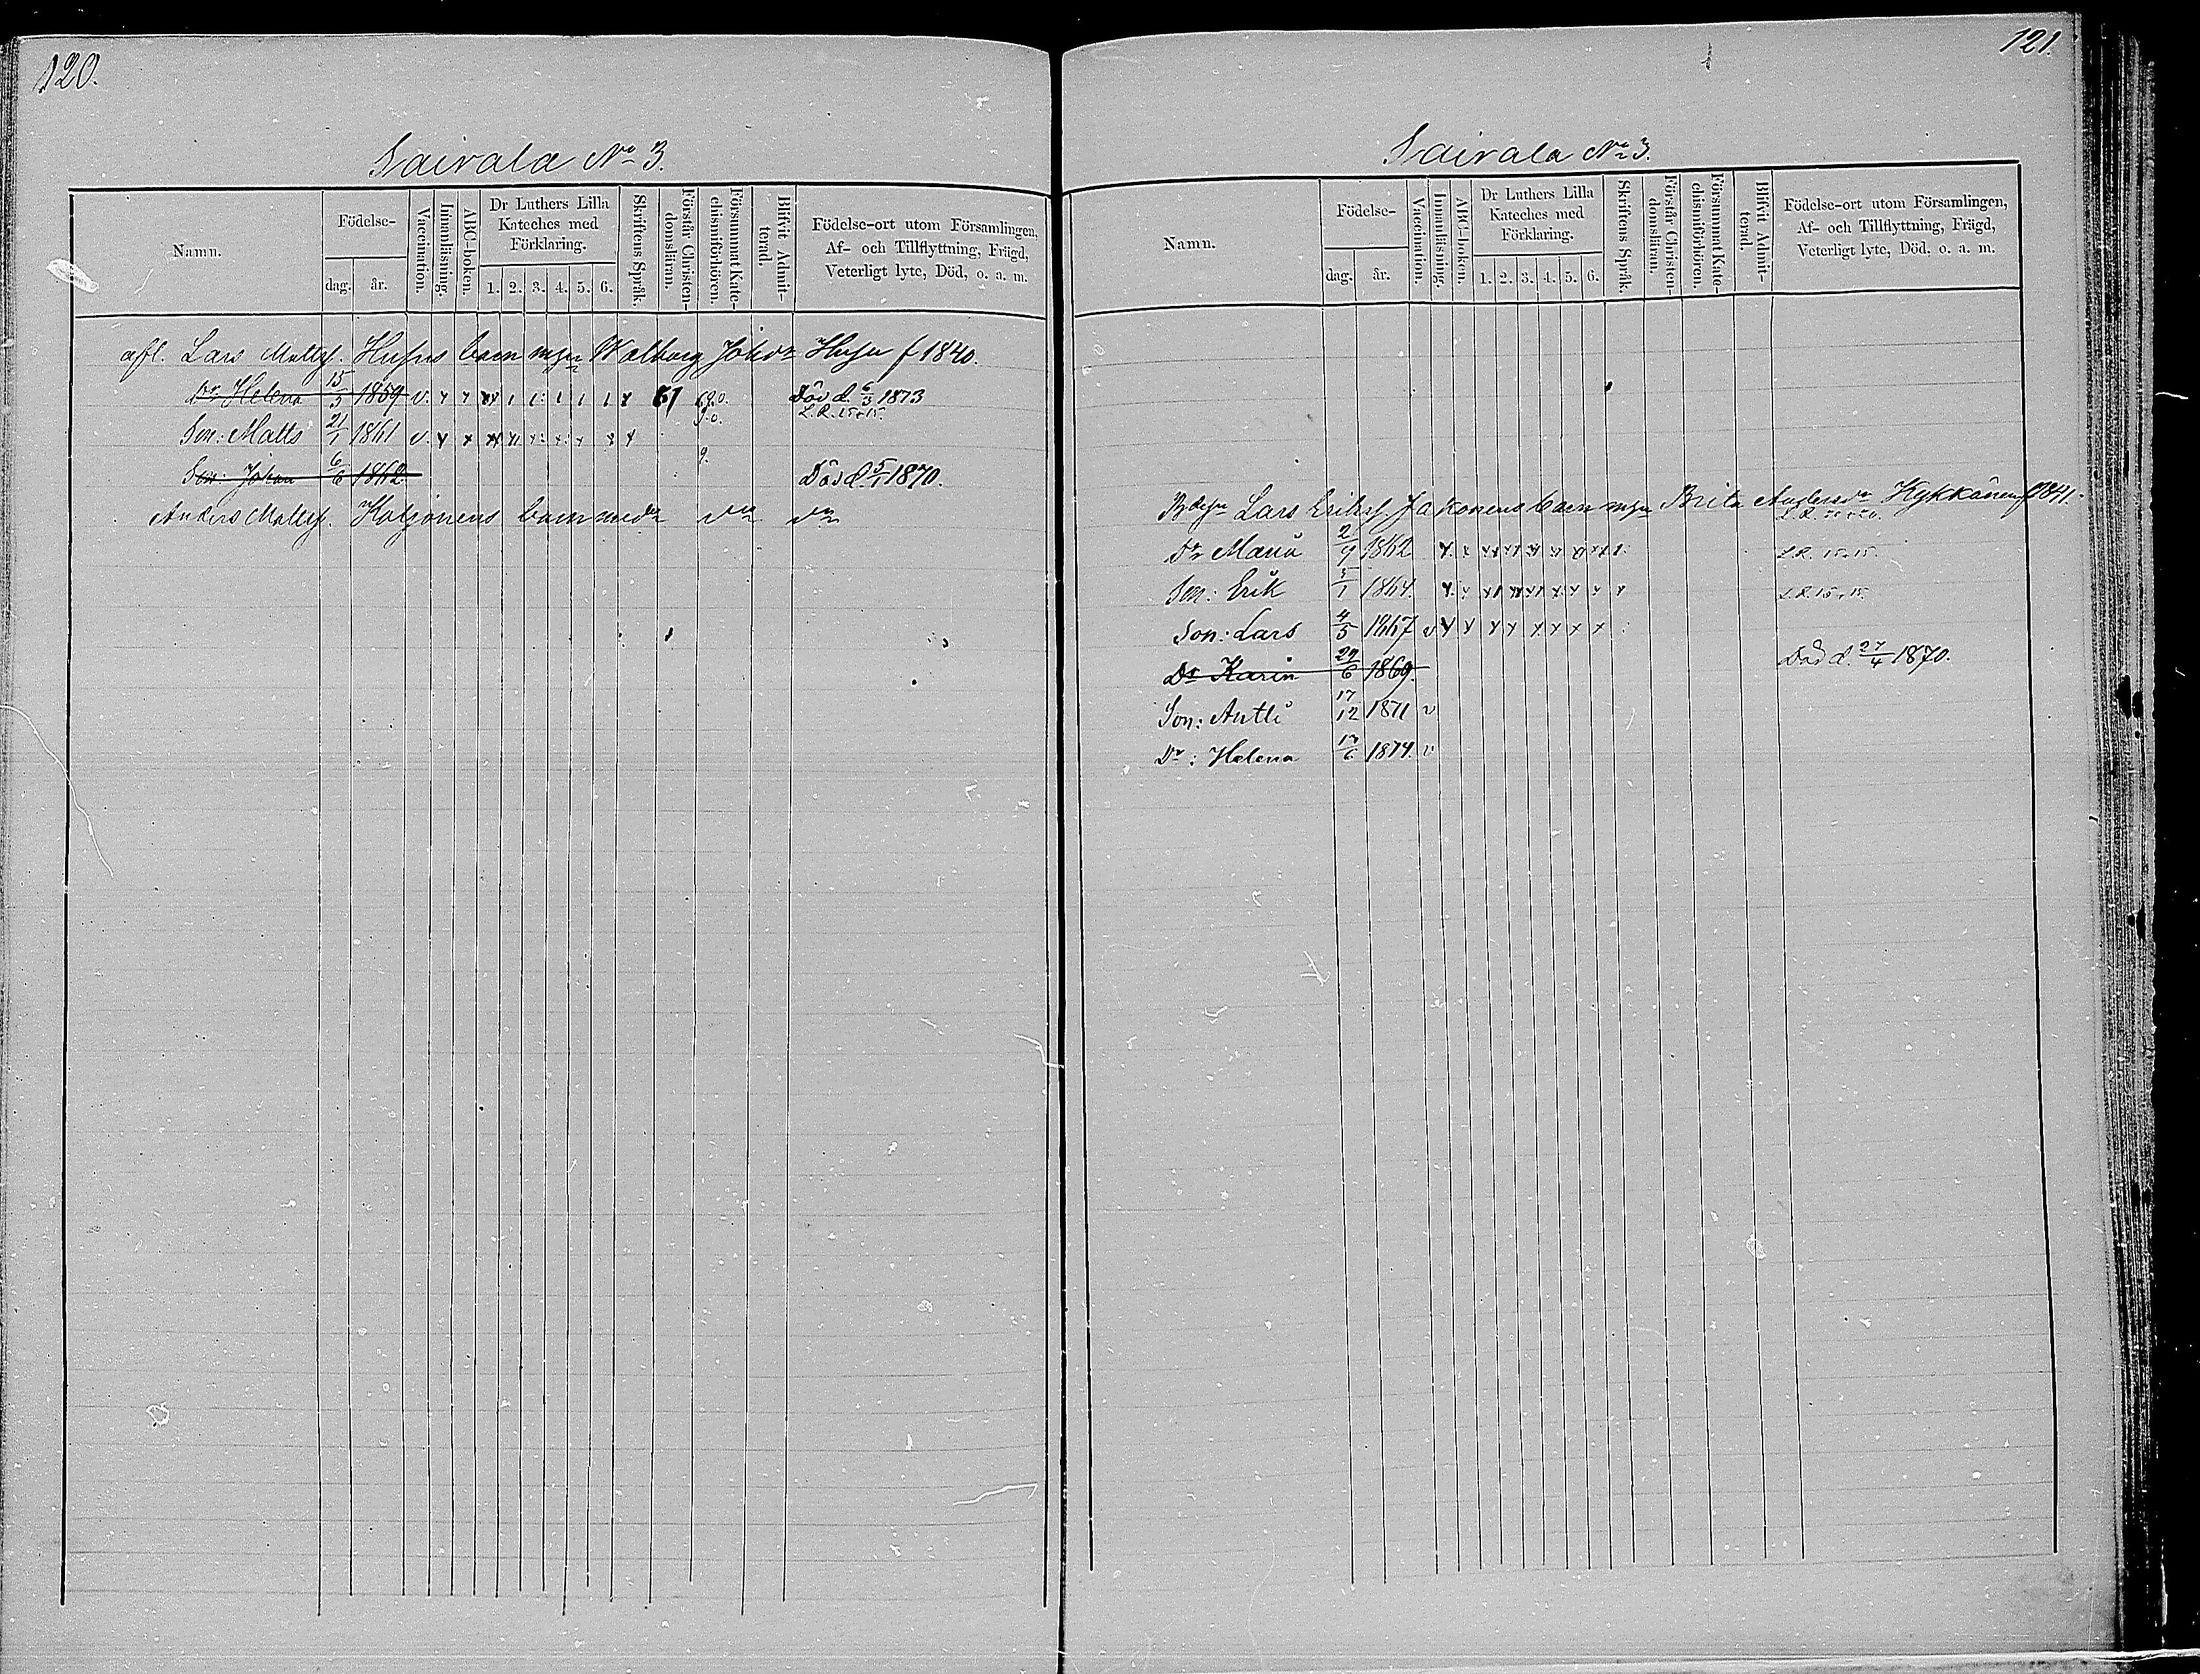 120.
Sairala No 3.
Namn.
Födelse-
dag.
år.
Vaccination.
Innanläsning.
ABC-boken.
Dr Luthers Lilla
Kateches med
Förklaring.
1. 2. 3. 4. 5. 6.
Skriftens Språk.
Förstår Christen-
domsläran.
Försummat Kate-
chismiförhören.
Blifvit Admit-
terad.
Födelse-ort utom Församlingen,
Af- och Tillflyttning, Frägd,
Veterligt lyte, Död, o. a. m.
afl. Lars Mattss. barn Walborg Johdr f 1840.
Dr Helena 15/5 1859 v. Död d. 6/3 1873
L. R. 15+15
Son: Matts 21/1 1861 v.
Son: Johan 6/6 1862 Död d. 5/1 1870.
Anders Mattss. barn med
121.
Sairala No 3.
Namn.
Födelse-
dag.
år.
Vaccination.
Innanläsning.
ABC-boken.
Dr Luthers Lilla
Kateches med
Förklaring.
1. 2. 3. 4. 5. 6.
Skriftens Språk.
Förstår Christen-
domsläran.
Försummat Kate-
chismiförhören.
Blifvit Admit-
terad.
Födelse-ort utom Församlingen,
Af- och Tillflyttning, Frägd,
Veterligt lyte, Död, o. a. m.
Lars Erikss. Jakonens barn Brita Andersdr Kykkänen f 1841.
Dr Maria 2/9 1862 L. R. 15+15.
Son: Erik 5/1 1864. L. R. 15+15.
Son: Lars 4/5 1867 v
Dr Karin 29/6 1869. Död d. 27/4 1870.
Son: Antti 17/12 1871 v
Dr: Helena 13/6 1874. v